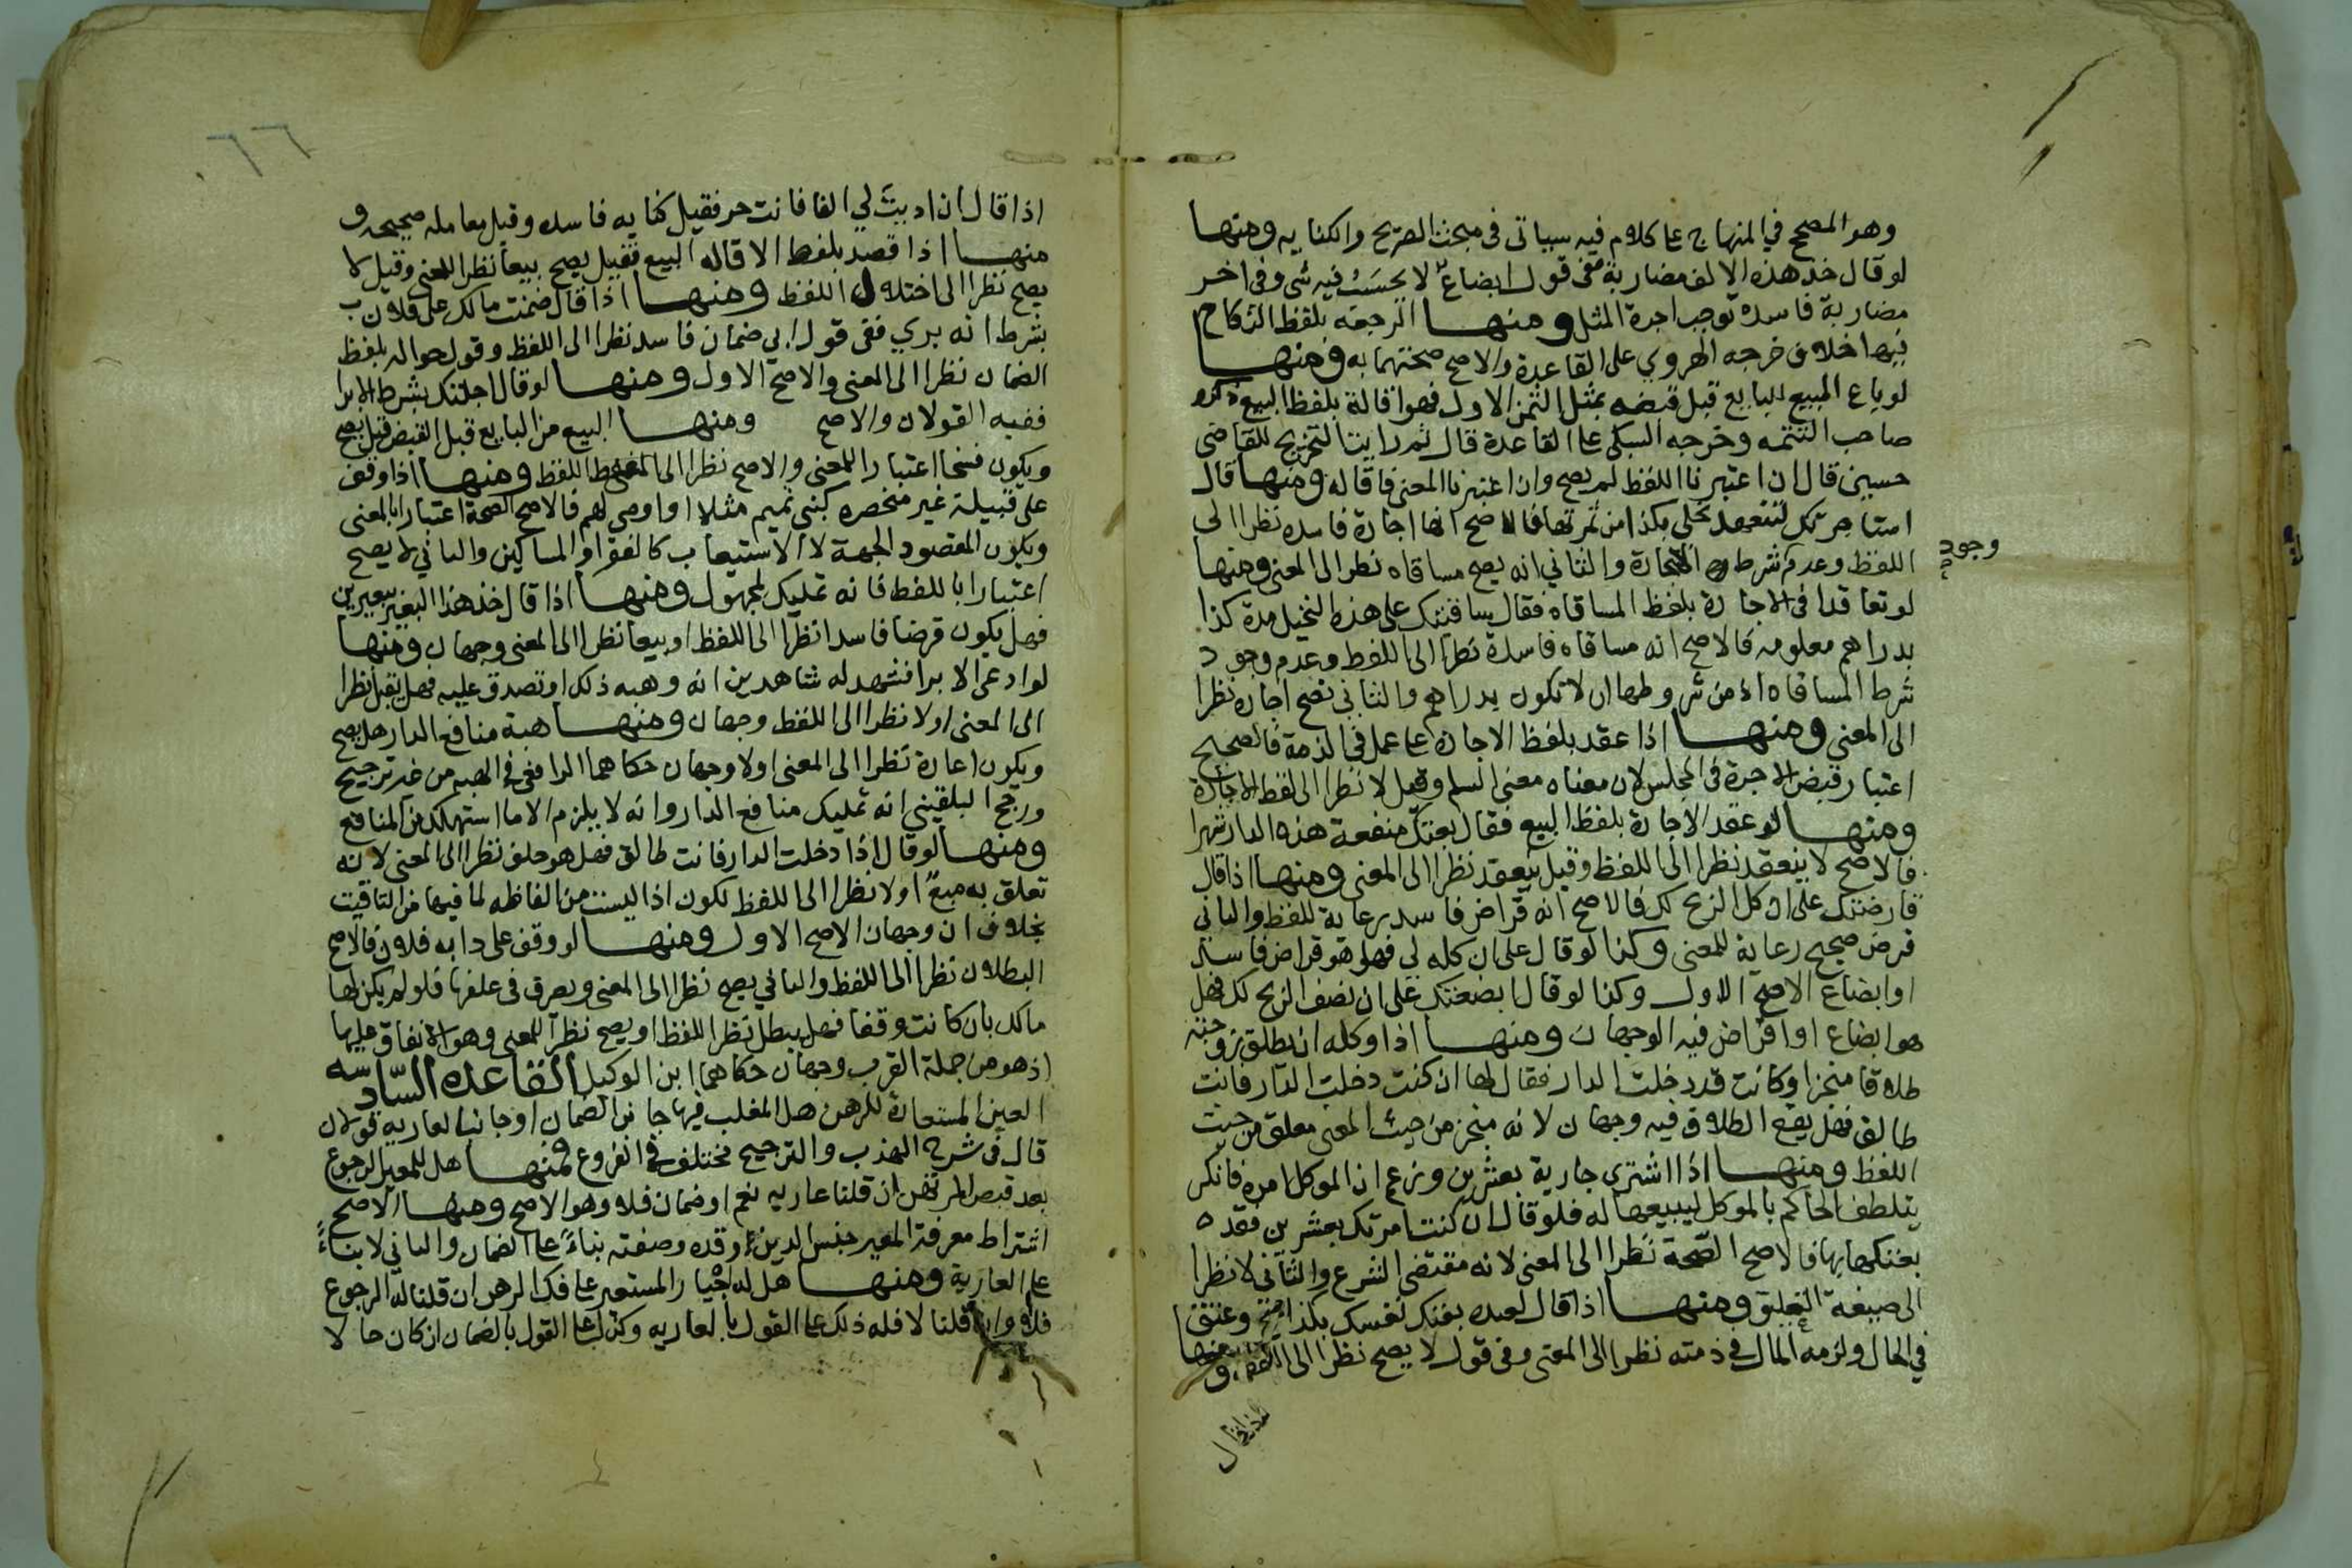 وهو المصحح في المنهاج على كلام فيه سياتى فى مبحث الصريح والكنايه ومنها
لو قال خذ هذه الالف مضاربة ففى قول ابضاع لا يحسب فيه شى وفى اخر
مضاربة فاسدة توجب اجرة المثل ومنها الرجعه بلفظ النكاح
فيها خلاف خرجه الهروي على القاعدة والاصح صحتهما به ومنها
لو باع المبيع للبايع قبل قبضه بمثل الثمن الاول فهو اقالة بلفظ البيع ذكره
صاحب التتمه وخرجه السبكى على القاعدة قال ثم رايت التخريج للقاضى
حسين قال ان اعتبرنا اللفظ لم يصح وان اعتبرنا المعنى فاقاله ومنها قال
استاجرتك لتتعهد نخلى بكذا من ثمرتها فالاصح انها اجارة فاسده نظرا الى
اللفظ وعدم شرط الاجارة والثاني انه يصح مساقاه نظرا الى المعنى ومنها
وجود
لو تعاقدا فى الاجارة بلفظ المساقاه فقال ساقيتك على هذه النخيل مدة كذا
بدراهم معلومه فالاصح انه مساقاه فاسدة نظرا الى اللفظ وعدم وجود
شرط المساقاه اذ من شروطها ان لا تكون بدراهم والثاني تصح اجاره نظرا
الى المعنى ومنها اذا عقد بلفظ الاجارة على عمل فى الذمة فالصحيح
اعتبار قبض الاجرة فى المجلس لان معناه معنى السلم وقيل لا نظرا الى لفظ الاجارة
ومنها لو عقد الاجارة بلفظ البيع فقال بعتك منفعة هذه الدار شهرا
فالاصح لا ينعقد نظرا الى اللفظ وقيل ينعقد نظرا الى المعنى ومنها اذا قال
قارضتك على ان كل الربح لك فالاصح انه قراض فاسد رعاية للفظ والثاني
قرض صحيح رعاية للمعنى وكذا لو قال على ان كله لي فهل هو قراض فاسد
او ابضاع الاصح الاول وكذا لو قال ابضعتك على ان نصف الربح لك فهل
هو ابضاع او اقراض فيه الوجهان ومنها اذا وكله ان يطلق زوجته
طلاقا منجزا وكانت قد دخلت الدار فقال لها ان كنت دخلت الدار فانت
طالق فهل يقع الطلاق فيه وجهان لانه منجز من حيث المعنى معلق من حيث
اللفظ ومنها اذا اشترى جارية بعشرين وزعم ان الموكل امره فانكر
يتلطف الحاكم بالموكل ليبيعها له فلو قال ان كنت امرتك بعشرين فقد
بعتكها بها فالاصح الصحة نظرا الى المعنى لانه مقتضى الشرع والثاني لا نظرا
الى صيغة التعليق ومنها اذا قال لعبده بعتك نفسك بكذا صح وعتق
في الحال ولزمه المال فى ذمته نظرا الى المعنى وفى قول لا يصح نظرا الى اللفظ ومنها
اذا قال ان اديت لي الفا فانت حر فقيل كتابه فاسده وقيل معامله صحيحه و
منها اذا قصد بلفظ الاقاله البيع فقيل يصح بيعا نظرا للمعنى وقيل لا
يصح نظرا الى اختلال اللفظ ومنها اذا قال ضمنت مالك على فلان
بشرط انه بري ففى قول انه ضمان فاسد نظرا الى اللفظ وقول حواله بلفظ
الضمان نظرا الى المعنى والاصح الاول ومنها لو قال احلتك بشرط الابرا
ففيه القولان والاصح ومنها البيع من البايع قبل القبض قيل يصح
ويكون فسخا اعتبارا للمعنى والاصح نظرا الى اللفظ ومنها اذا وقف
على قبيلة غير منحصره كبنى تميم مثلا او اوصى لهم فالاصح الصحة اعتبارا بالمعنى
ويكون المقصود الجهة لا الاستيعاب كالفقرا والمساكين والثاني لا يصح
اعتبارا باللفظ فانه تمليك لمجهول ومنها اذا قال خذ هذا البعير ببعيرين
فهل يكون قرضا فاسدا نظرا الى اللفظ او بيعا نظرا الى المعنى وجهان ومنها
لو ادعى الابرا فشهد له شاهدين انه وهبه ذلك او تصدق عليه فهل يقبل نظرا
الى المعنى اولا نظرا الى اللفظ وجهان ومنها هبة منافع الدار هل يصح
ويكون اعارة نظرا الى المعنى اولا وجهان حكاهما الرافعى فى الهبه من غير ترجيح
ورجح البلقيني انه تمليك منافع الدار وانه لا يلزم الا ما استهلك من المنافع
ومنها لو قال اذا دخلت الدار فانت طالق فهل هو حلف نظرا الى المعنى لانه
تعلق به منع اولا نظرا الى اللفظ لكون اذا ليست من الفاظه لما فيها من التاقيت
بخلاف ان وجهان الاصح الاول ومنها لو وقف على دابه فلان فالاصح
البطلان نظرا الى اللفظ والثاني يصح نظرا الى المعنى ويصرف فى علفها فلو لم يكن لها
مالك بان كانت وقفا فهل يبطل نظرا للفظ او يصح نظرا للمعنى وهو الانفاق عليها
اذ هو من جملة القرب وجهان حكاهما ابن الوكيل القاعده السادسه
العين المستعارة للرهن هل المغلب فيها جانب الضمان او جانب العاريه قولان
قال فى شرح المهذب والترجيح مختلف فى الفروع فمنها هل للمعير الرجوع
بعد قبض المرتهن ان قلنا عاريه نعم او ضمان فلا وهو الاصح ومنها الاصح
اشتراط معرفة المعير جنس الدين وقدره وصفته بناء على الضمان والثاني لا بناء
على العارية ومنها هل له اجبار المستعير على فك الرهن ان قلنا له الرجوع
فلا وان قلنا لا فله ذلك على القول بالعاريه وكذا على القول بالضمان ان كان حالا
اذا قال
٦٦